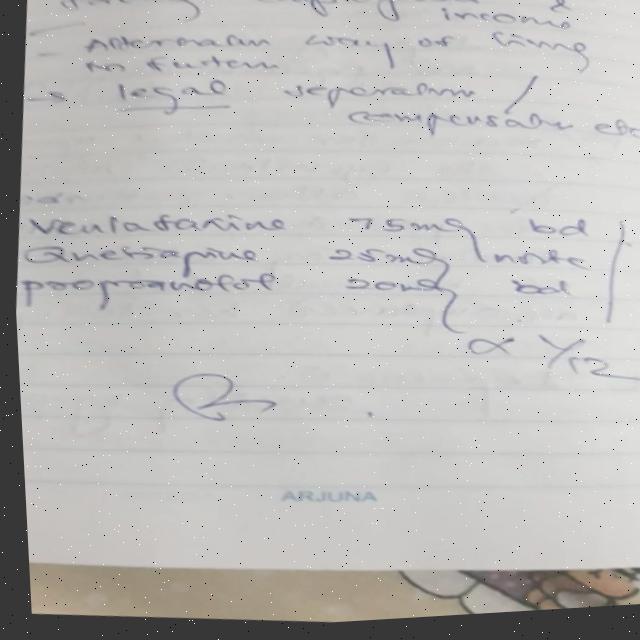 income &
- Alternative way of living
in future
→ legal separation /
compensation
Venlafaxine 75mg bd
Quetiapine 25mg nocte
propranolol 20mg bd
x 1/12
ARJUNA